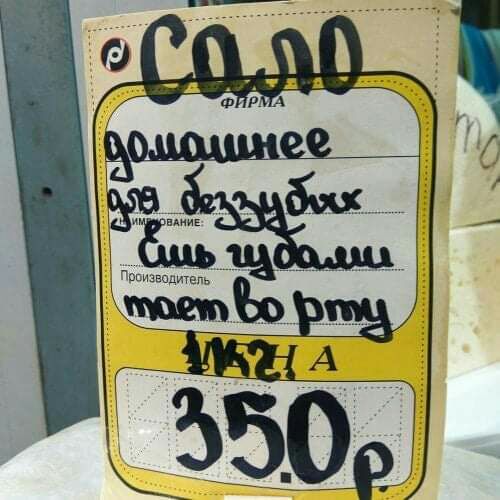 Сало
ФИРМА
домашнее
для беззубых
НАИМЕНОВАНИЕ:
Ешь губами
Производитель
тает во рту
ЦЕНА
1 кг.
350р